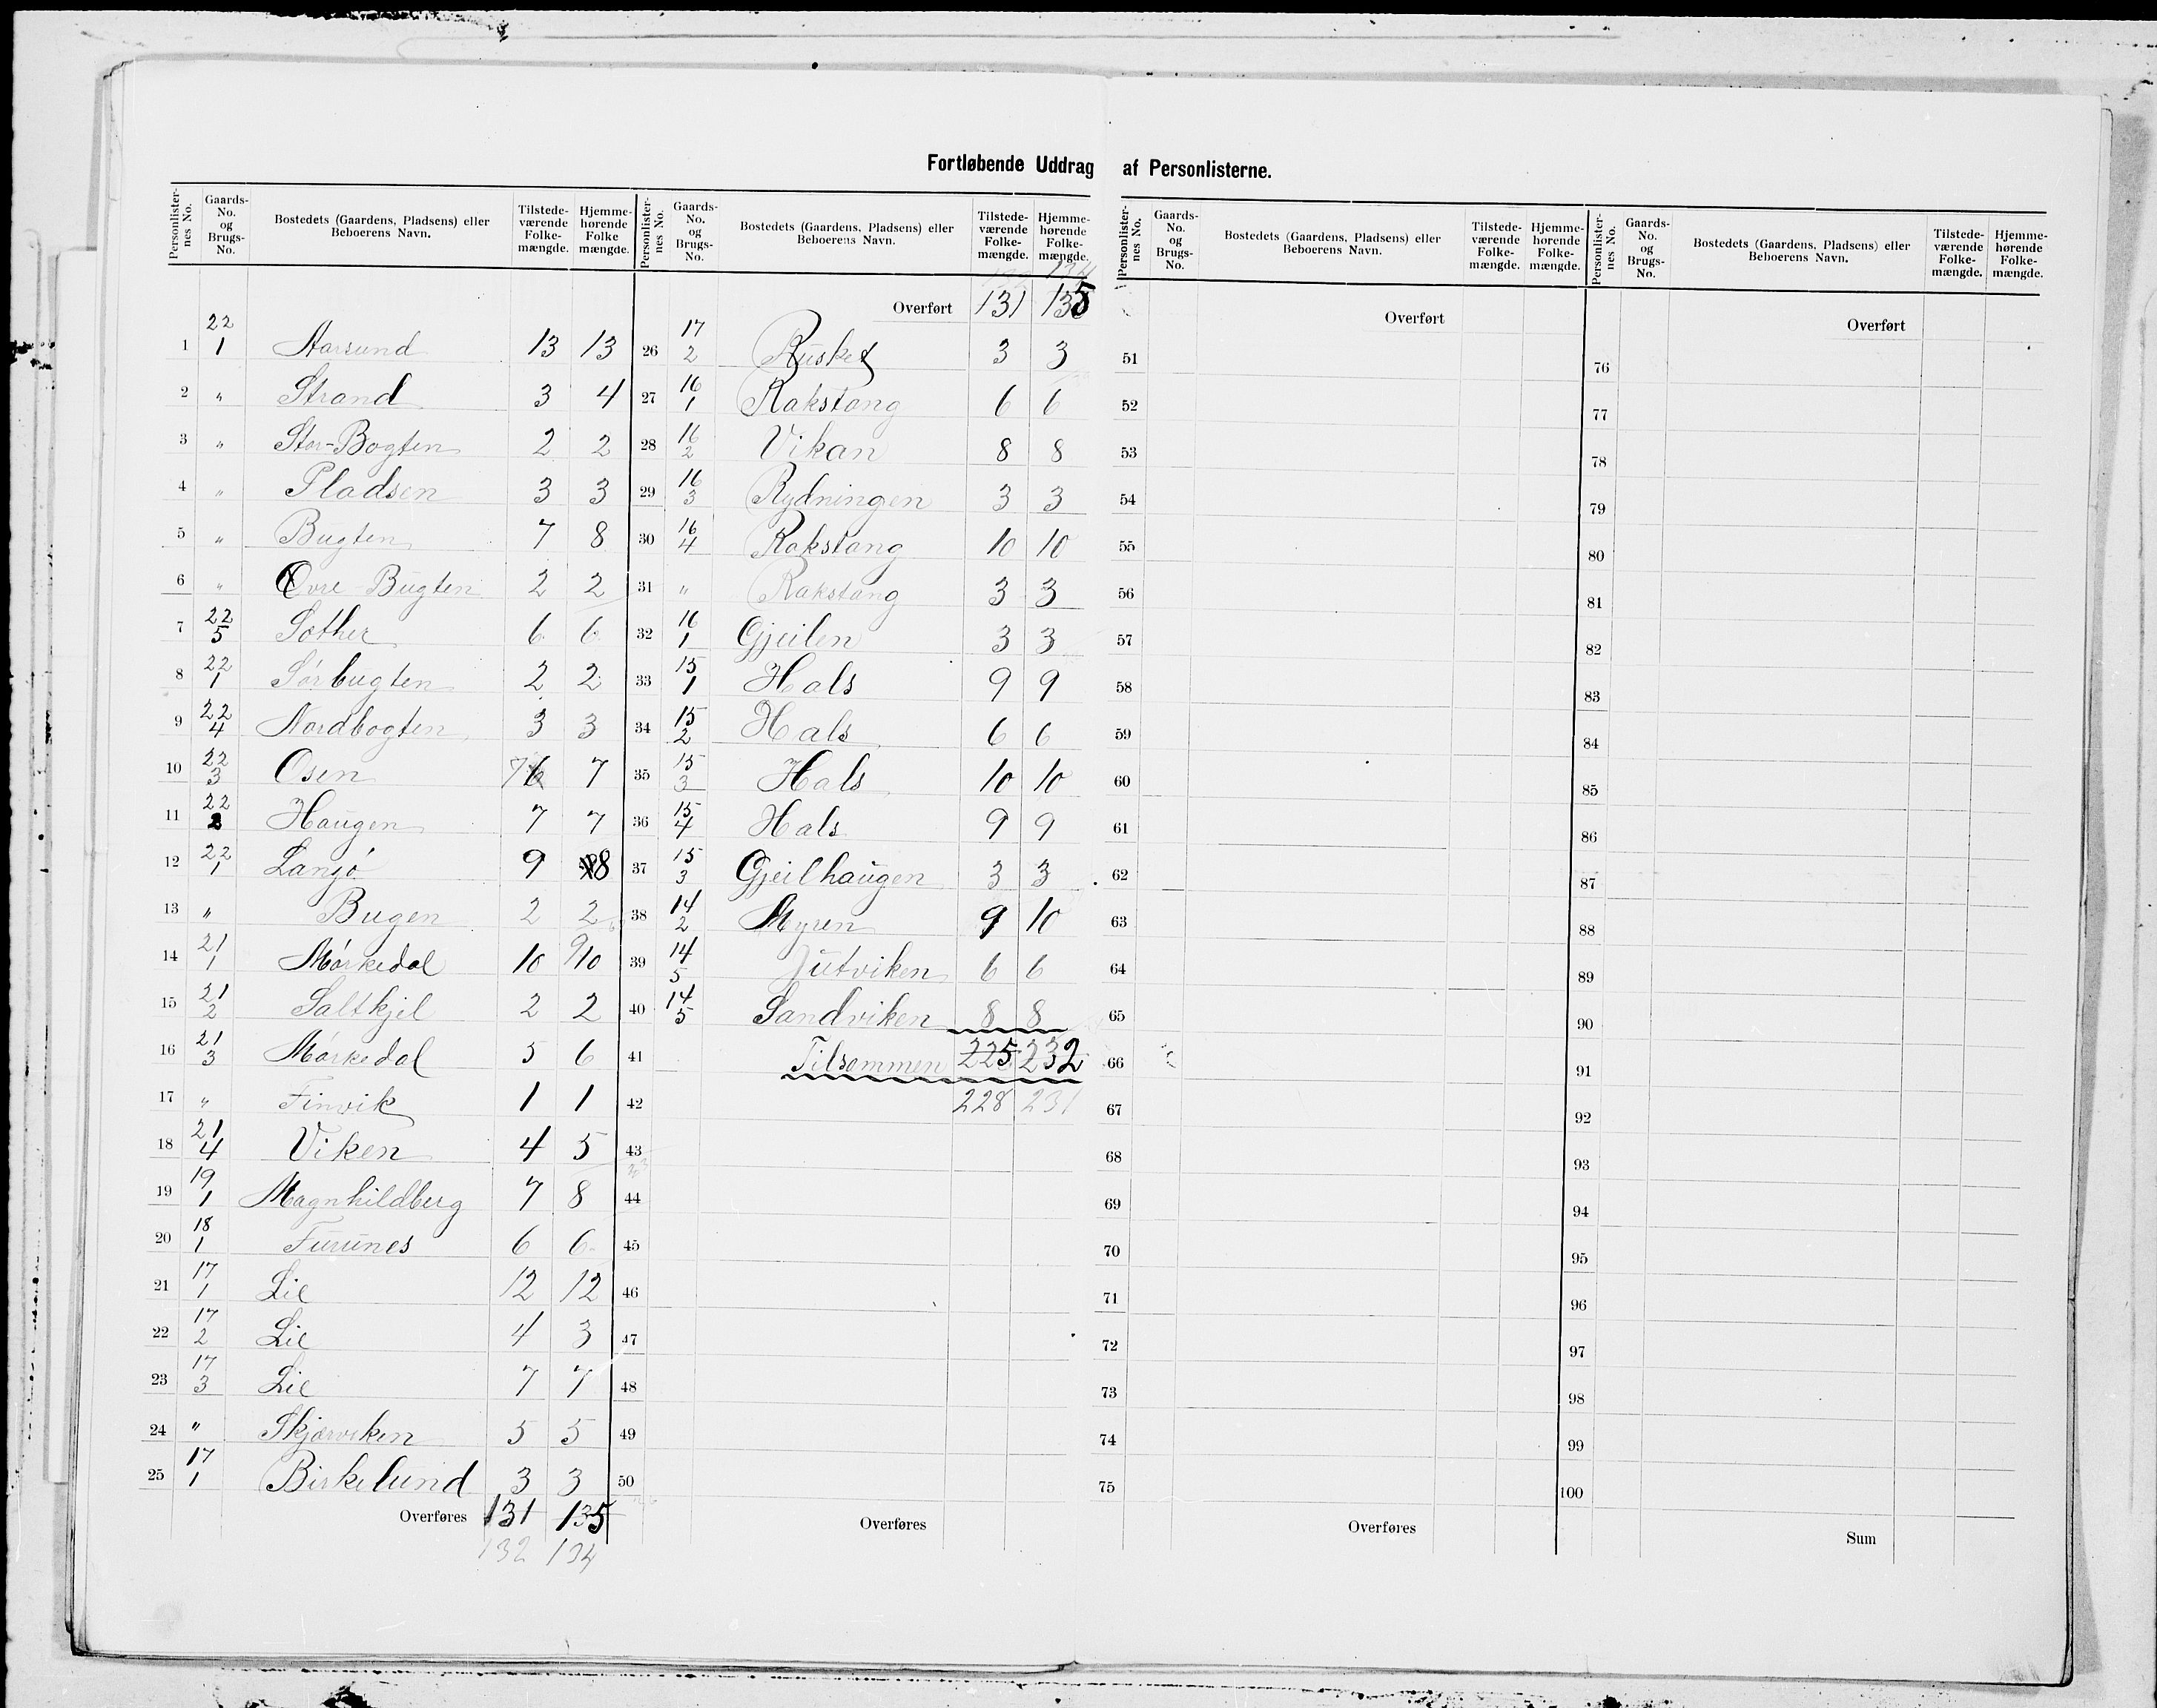 Fortløbende Uddrag af Personlisterne.
Personlisternes No. Gaards-No. og Brugs-No. Bostedets (Gaardens, Pladsens) eller Beboerens Navn. Tilstedeværende Folkemængde. Hjemmehørende Folkemængde.
1 22/1 Aarsund 13 13
2 " Strand 3 4
3 " Stor-Bogten 2 2
4 " Pladsen 3 3
5 " Bugten 7 8
6 " Øvre Bugten 2 2
7 22/5 Sother 6 6
8 22/1 Sørbugten 2 2
9 22/4 Nordbogten 3 3
10 22/3 Osen 7 6 7
11 22/2 Haugen 7 7
12 22/1 Langø 9 8
13 " Bugen 2 2
14 21/1 Mørkedal 10 9 10
15 21/2 Saltkjel 2 2
16 21/3 Mørkedal 5 6
17 " Finvik 1 1
18 21/4 Viken 4 5
19 19/1 Magnhildberg 7 8
20 18/1 Furunes 6 6
21 17/1 Lie 12 12
22 17/2 Lie 4 3
23 17/3 Lie 7 7
24 " Skjærviken 5 5
25 17/1 Birkelund 3 3
Overføres 131 135
132 134
Personlisternes No. Gaards-No. og Brugs-No. Bostedets (Gaardens, Pladsens) eller Beboerens Navn. Tilstedeværende Folkemængde. Hjemmehørende Folkemængde.
132 134
Overført 131 135
26 17/2 Rusket 3 3
27 16/1 Rakstang 6 6
28 16/2 Vikan 8 8
29 16/3 Rydningen 3 3
30 16/4 Rakstang 10 10
31 " Rakstang 3 3
32 16/1 Gjeilen 3 3
33 15/1 Hals 9 9
34 15/2 Hals 6 6
35 15/3 Hals 10 10
36 15/4 Hals 9 9
37 15/3 Gjeilhaugen 3 3
38 14/2 Myren 9 10
39 14/5 Jutviken 6 6
40 14/5 Sandviken 8 8
41 Tilsammen 225 232
42 228 231
43
44
45
46
47
48
49
50
Overføres
Personlisternes No. Gaards-No. og Brugs-No. Bostedets (Gaardens, Pladsens) eller Beboerens Navn. Tilstedeværende Folkemængde. Hjemmehørende Folkemængde.
Overført
51
52
53
54
55
56
57
58
59
60
61
62
63
64
65
66
67
68
69
70
71
72
73
74
75
Overføres
Personlisternes No. Gaards-No. og Brugs-No. Bostedets (Gaardens, Pladsens) eller Beboerens Navn. Tilstedeværende Folkemængde. Hjemmehørende Folkemængde.
Overført
76
77
78
79
80
81
82
83
84
85
86
87
88
89
90
91
92
93
94
95
96
97
98
99
100
Sum